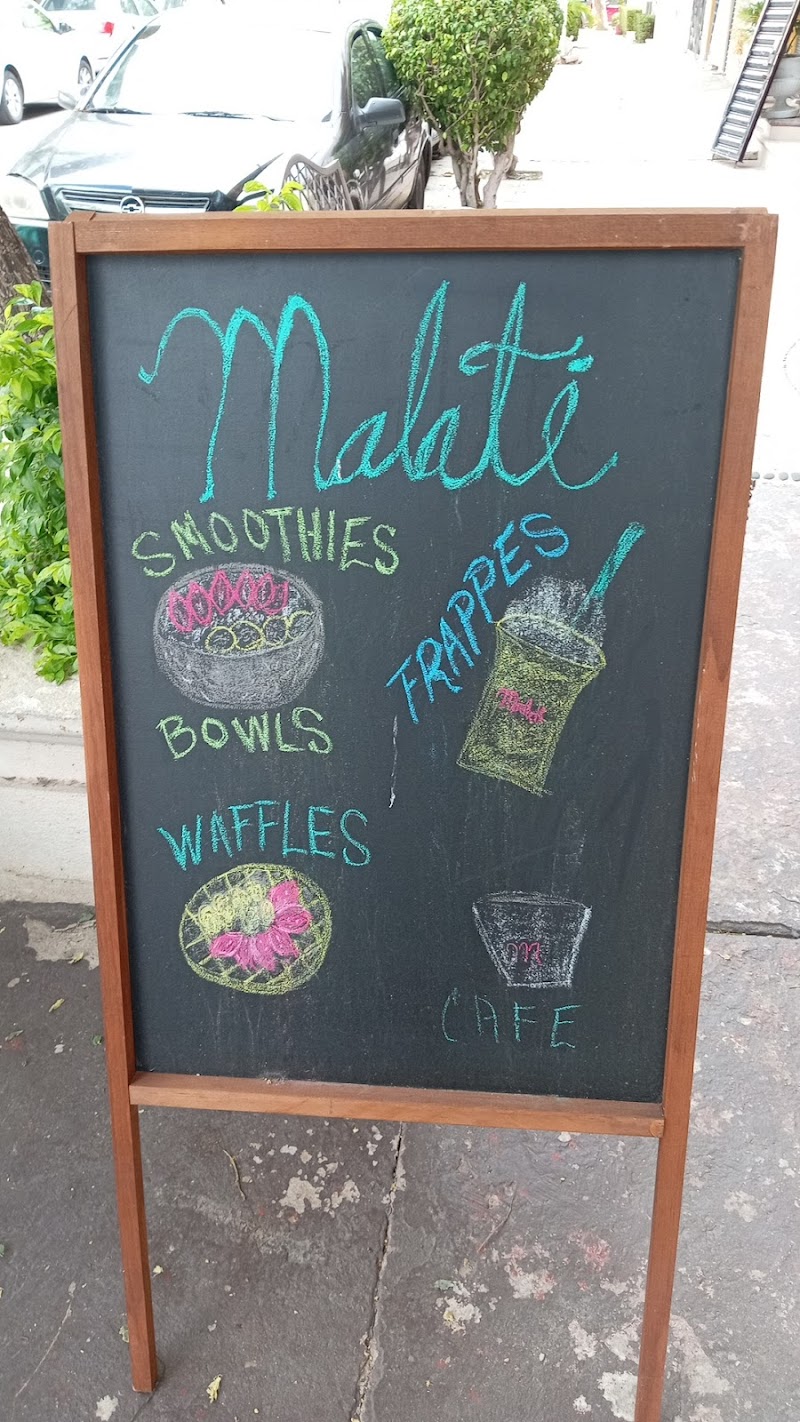 Malaté
SMOOTHIES
BOWLS
FRAPPES
Malaté
WAFFLES
M
CAFE